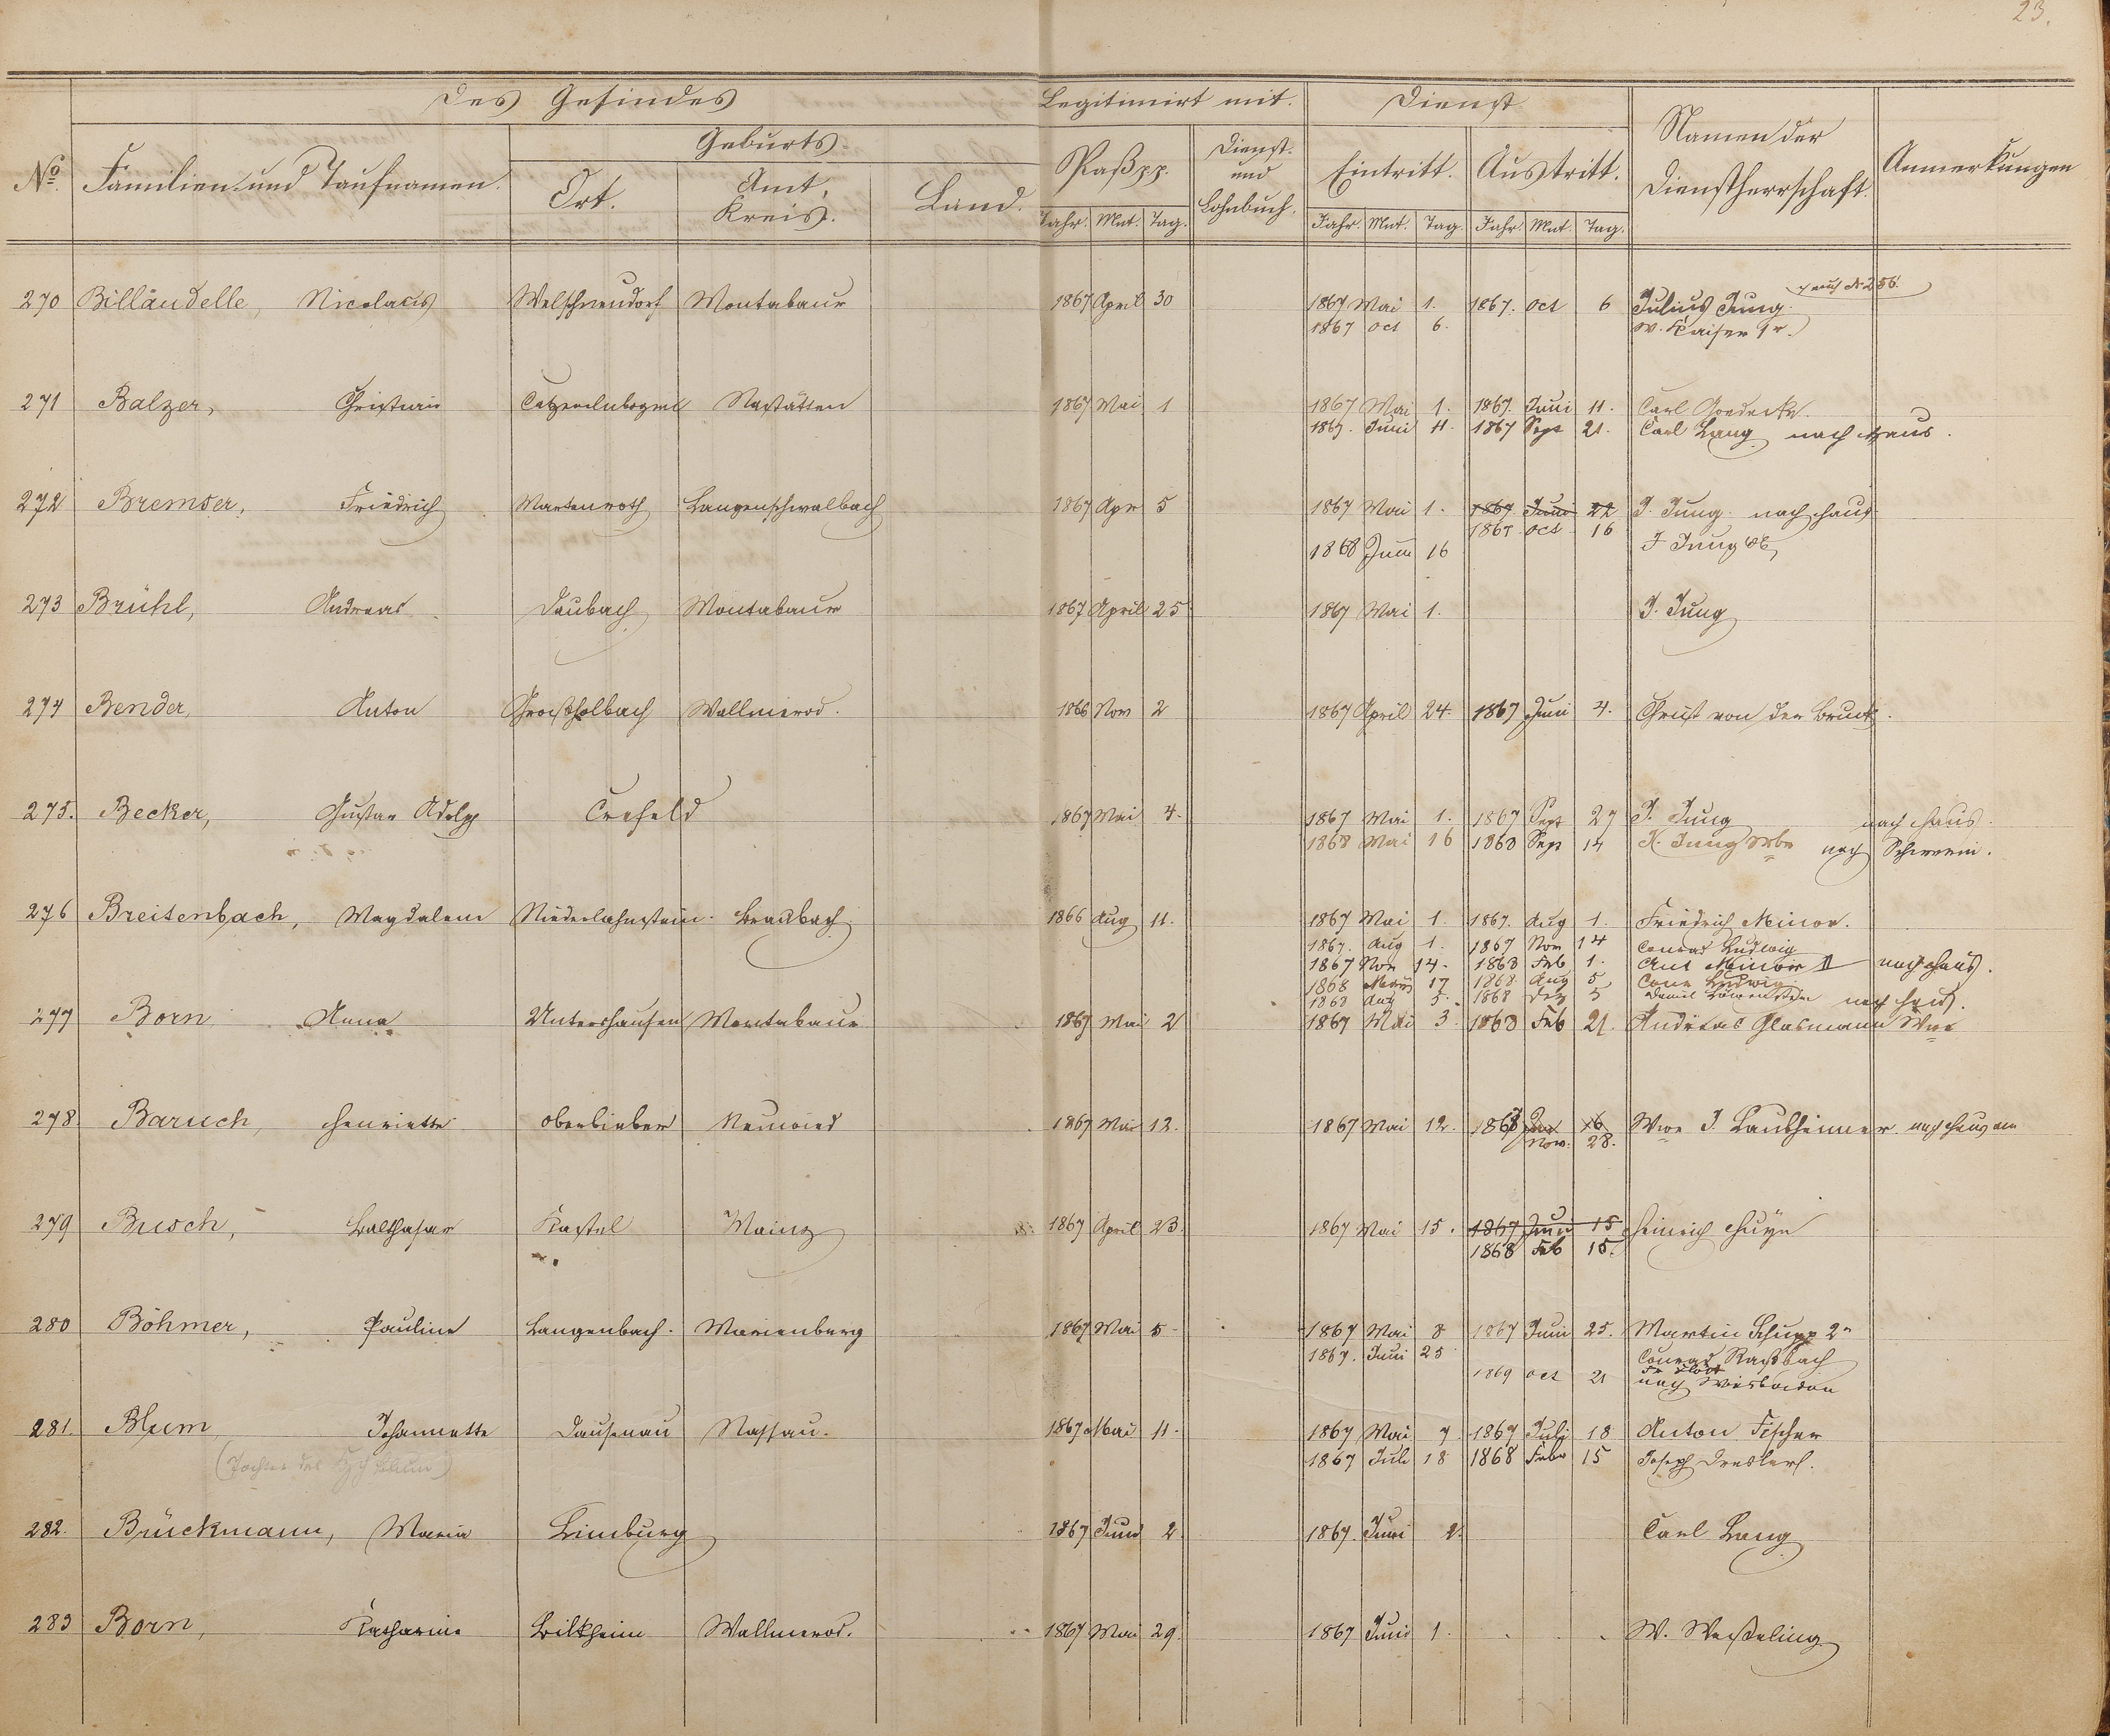 23.
Des Gesindes Legitimirt mit. Dienst
No. Familien- und Taufnamen. Geburts- Paß pp. Dienst- und Lohnbuch. Eintritt. Austritt. Namen der Dienstherrschaft. Anmerkungen
Ort. Amt, Kreis. Land.
Jahr. Mnt. Tag. Jahr. Mnt. Tag. Jahr. Mnt. Tag.
270 Billaudelle, Nicolaus Welschneudorf Montabaur 1867 April 30 1867 Mai 1. 1867. Oct 6 Julius Jung. 256
1867 Oct 6. W. Kaiser 1r.
271 Balzer, Christian Catzenelnbogen Nastätten 1867 Mai 1 1867 Mai 1. 1867. Juni 11. Carl Goedecke.
1867. Juni 11. 1867 Sept 21. Carl Lang nach Haus.
272 Bremser, Friedrich Martenroth Langenschwalbach 1867 Apr 5 1867 Mai 1. 1867 Juni 22 J. Jung nach Haus
1867 Oct 16
1868 Juni 16 J Jung
273 Brühl, Andreas Daubach Montabaur 1867 April 25 1867 Mai 1. J. Jung
274 Bender, Anton Großholbach Wallmerod. 1866 Nov 2 1867 April 24. 1867 Juni 4. Christ von der Bruck.
275. Becker, Gustav Adolph Crefeld 1867 Mai 4. 1867 Mai 1. 1867 Sept 27 J. Jung nach Haus.
1868 Mai 16 1868 Sept 14 K. Jung Wbe nach Schwerin.
276 Breitenbach, Magdalena Niederlahnstein. Braubach 1866 Aug 11. 1867 Mai 1. 1867. Aug 1. Friedrich Minor.
1867. Aug 1. 1867 Nov 14 Conrad Ludwig
1867 Nov 14. 1868 Feb 1. Ant Minor II nach Haus.
1868 März 17 1868 Aug 5 Conr Ludwig
1868 Aug 5. 1868 Dez 5 Daniel Löwenstein nach Haus.
277 Born Anna Untershausen Montabaur 1867 Mai 2 1867 Mai 3. 1868 Feb 21. Andreas Glasmann Wwe
278 Baruch, Henriette Oberbieber Neuwied 1867 Mai 12. 1867 Mai 12. 1868 16 Wwe J. Laubheimer
Nov. 28.
279 Busch, Balthasar Kastel Mainz 1867 April 23. 1867 Mai 15. 1867 Juni 15 Heinrich Huyn
1868 Feb 15.
280 Böhmer, Pauline Langenbach. Marienburg 1867 Mai 5 1867 Mai 8 1867 Juni 25. Martin Schupp 2r
1867. Juni 25 Conrad Raßbach
1869 Oct 21 nach Wiesbaden
281. Blum Johannette Dausenau Nassau. 1867 Mai 11. 1867 Mai 7 1867 Juli 18 Anton Fischer
(Tochter des Blum) 1867 Juli 18 1868 Febr 15 Joseph
282. Brückmann, Maria Limburg 1867 Juni 2. 1867. Juni 2. Carl Lang
283 Born, Katharine Bilkheim Wallmerod. 1867 Mai 29. 1867 Juni 1. W. Weßeling